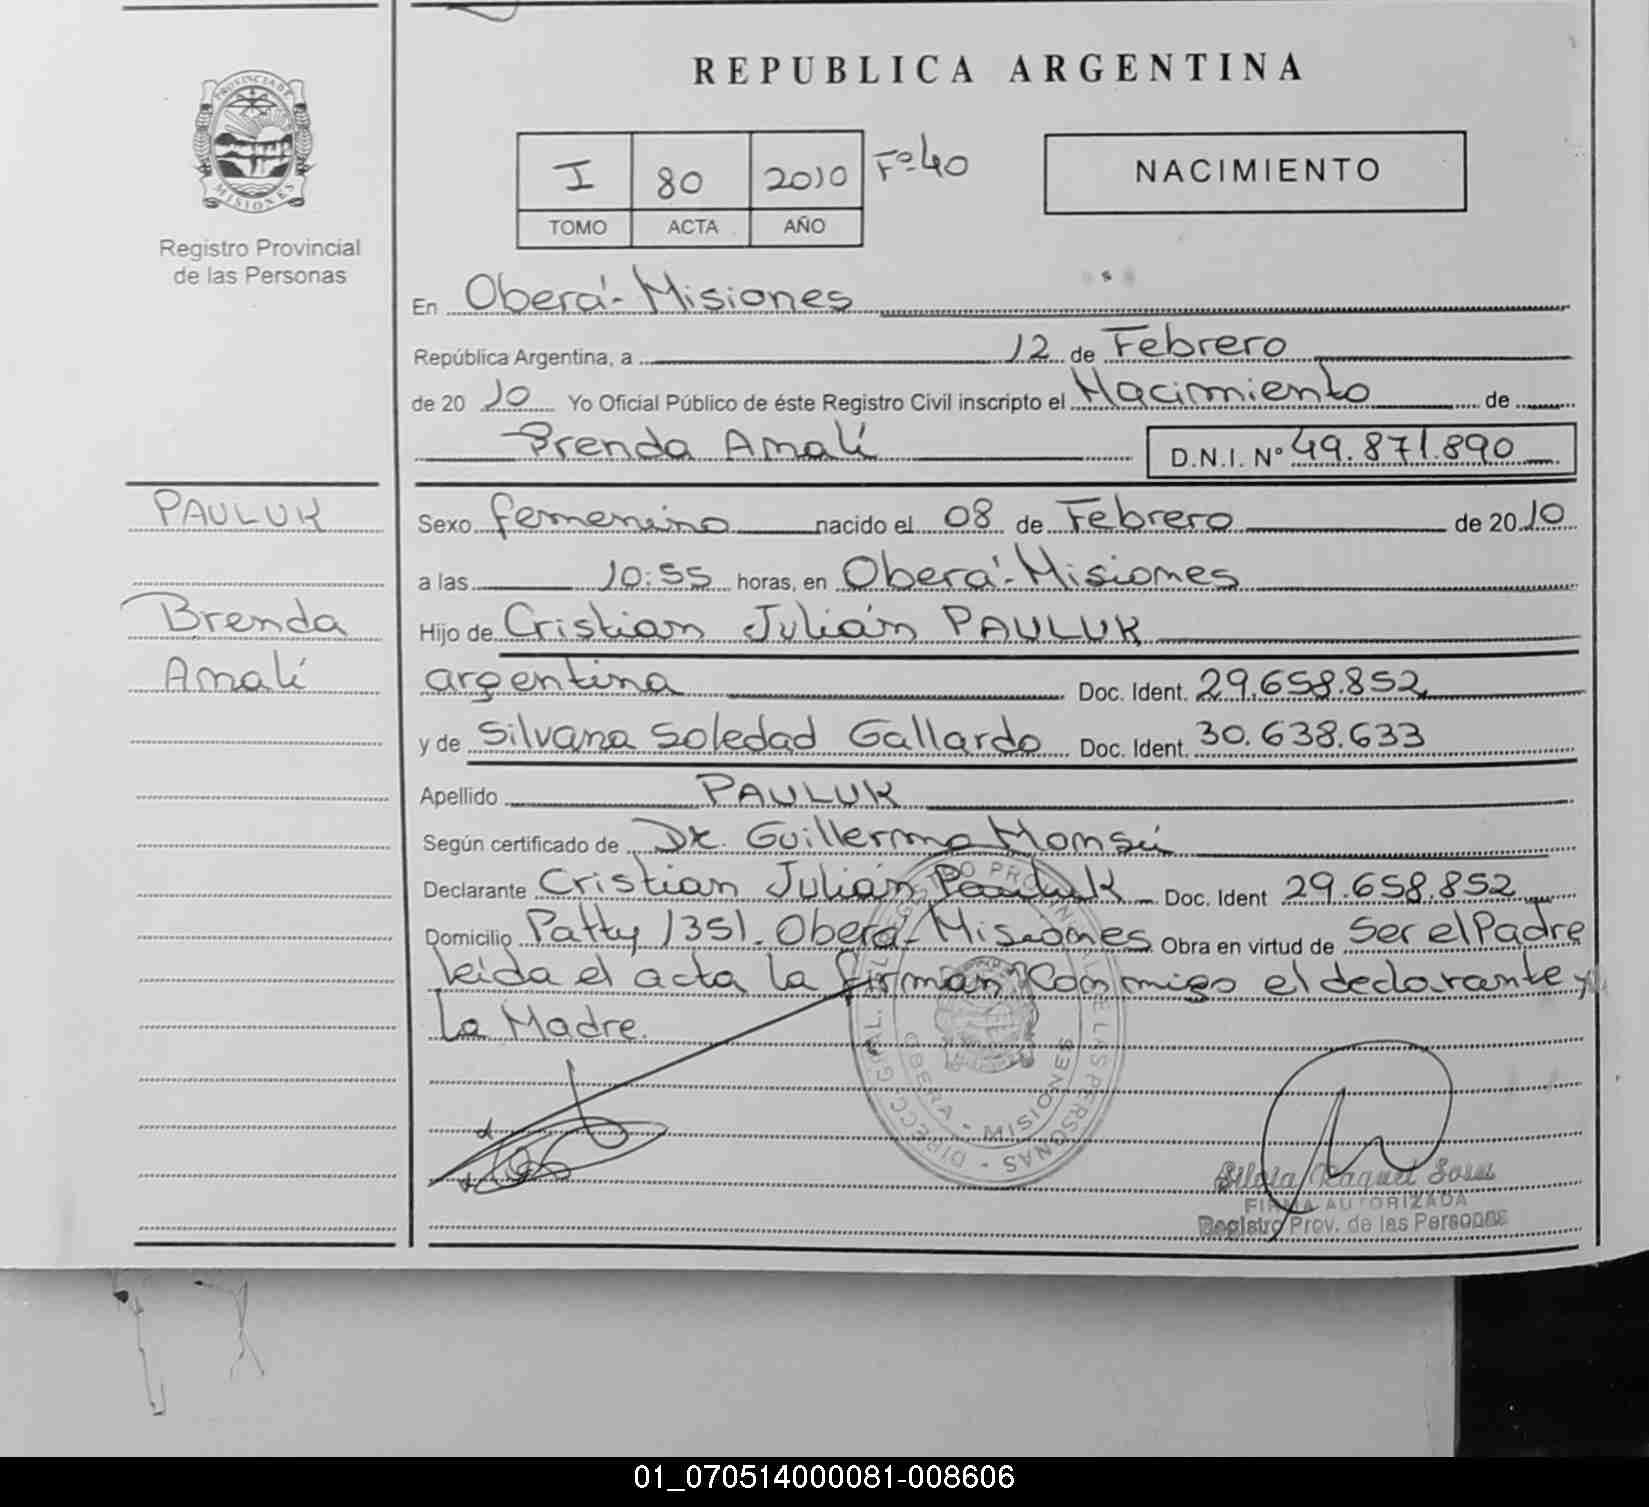 REPUBLICA ARGENTINA
PROVINCIA DE
MISIONES
Registro Provincial
de las Personas
I 80 2010 Fº 40
TOMO ACTA AÑO
NACIMIENTO
En Oberá - Misiones
República Argentina, a 12 de Febrero
de 20 10 Yo Oficial Público de éste Registro Civil inscripto el Nacimiento de
Brenda Amalí D.N.I. Nº 49.871.890
PAULUK
Sexo femenino nacido el 08 de Febrero de 20 10
a las 10:55 horas, en Oberá - Misiones
Brenda
Hijo de Cristian Julián PAULUK
Amalí
argentina Doc. Ident. 29.658.852
y de Silvana Soledad Gallardo Doc. Ident. 30.638.633
Apellido PAULUK
Según certificado de Dr. Guillermo
Declarante Cristian Julián Pauluk Doc. Ident 29.658.852
Domicilio Patty 1351. Oberá - Misiones Obra en virtud de Ser el Padre
leida el acta la firman Conmigo el declarante y
La Madre.
DIRECC. GRAL. DEL REGISTRO PROVINCIAL DE LAS PERSONAS
OBERA - MISIONES
Silvia Raquel Sosa
FIRMA AUTORIZADA
Registro Prov. de las Personas
01_070514000081-008606